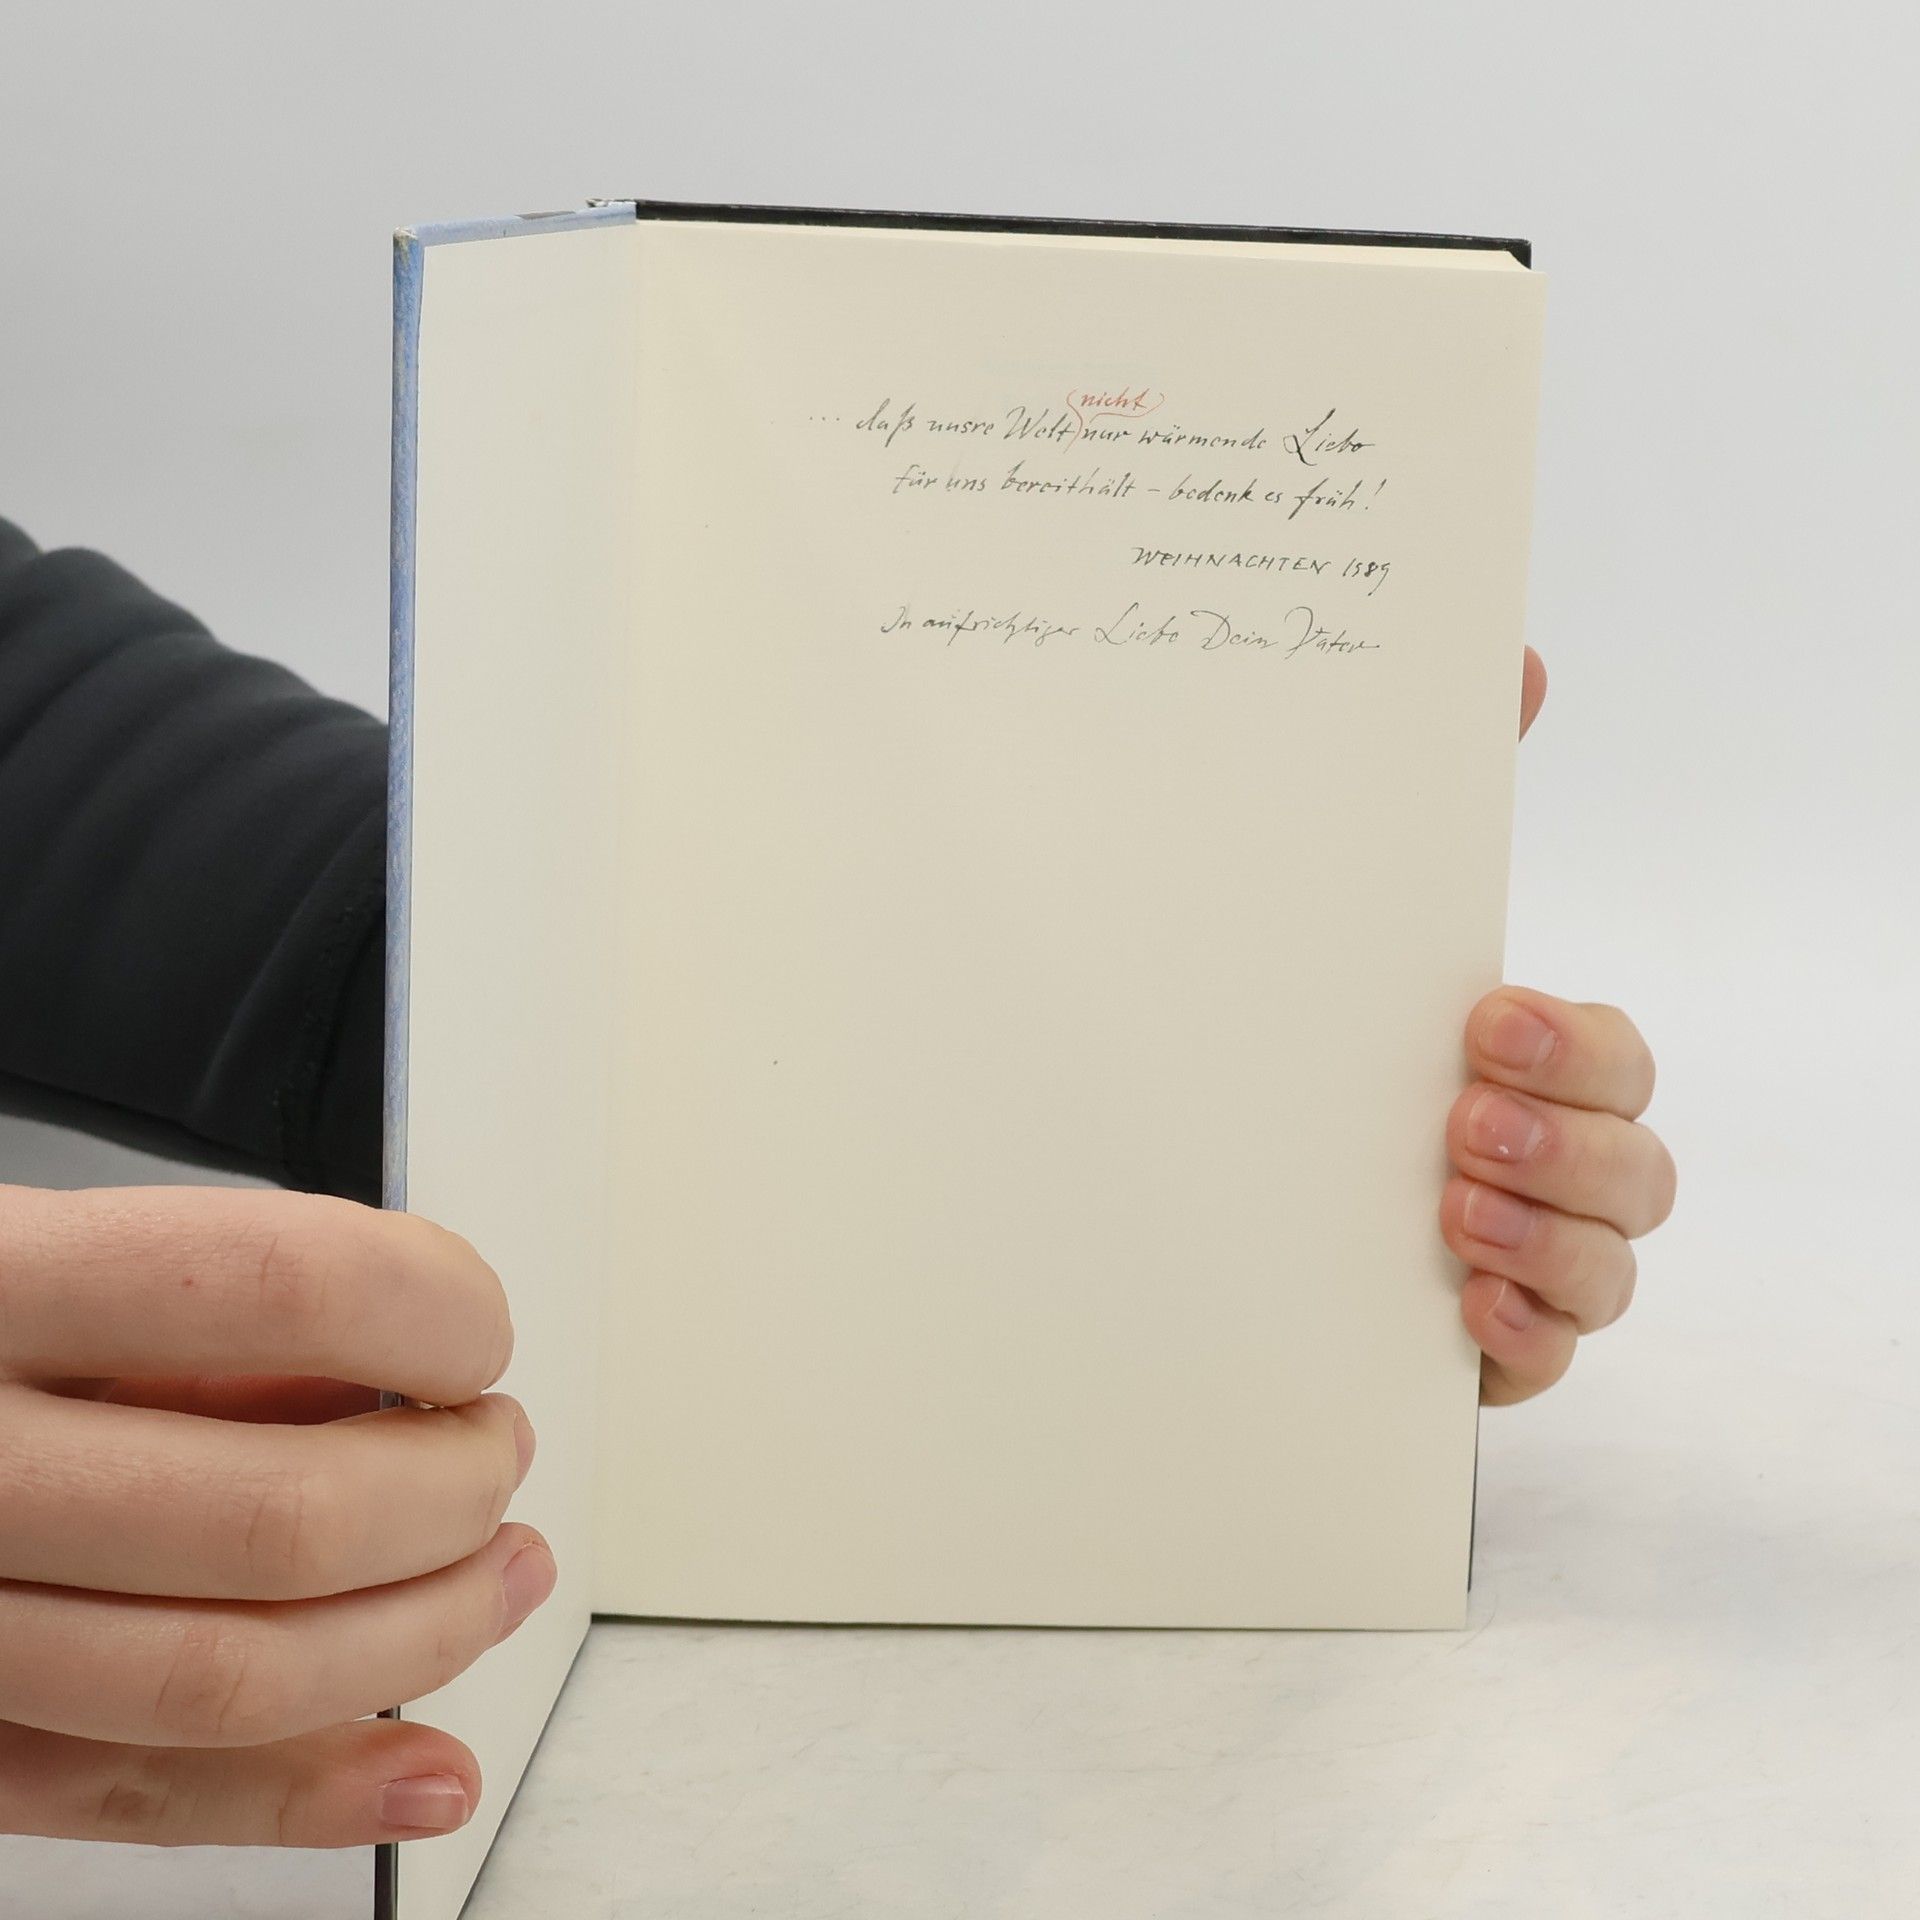 ... daß unsre Welt nicht nur wärmende Liebe
für uns bereithält – bedenk es früh!
WEIHNACHTEN 1989
In aufrichtiger Liebe Dein Vater